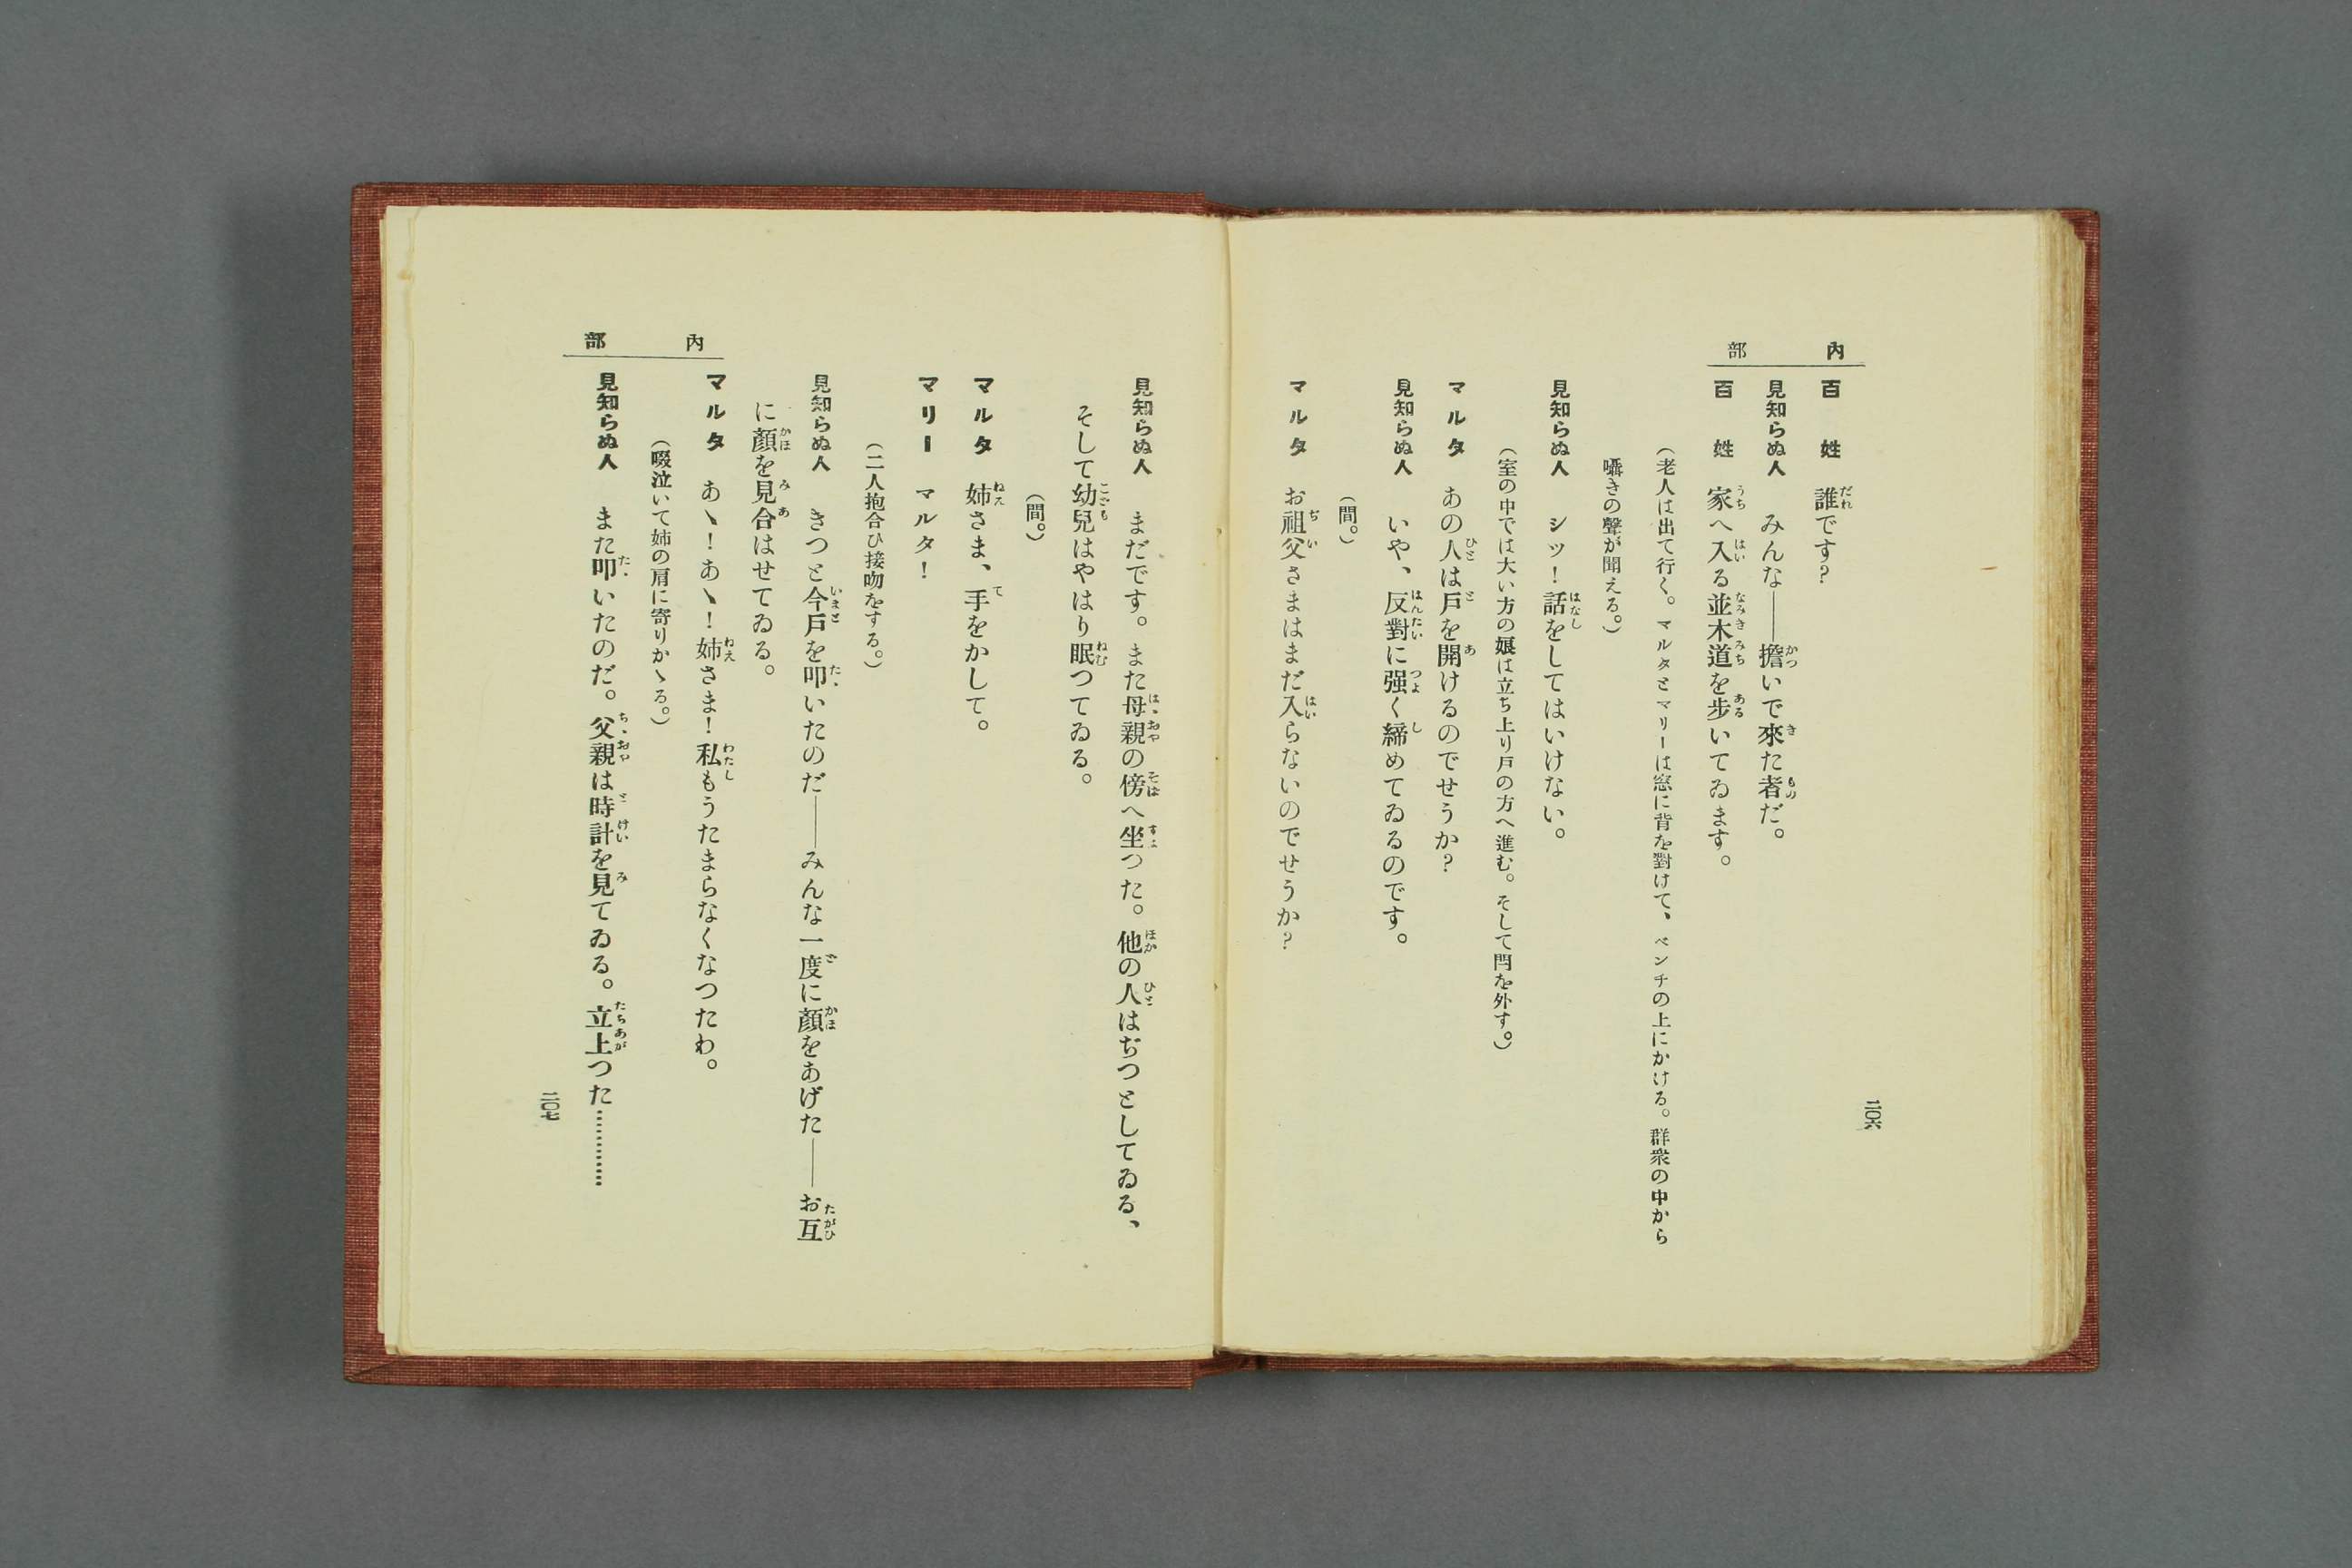 內部
百姓　誰です？
見知らぬ人　みんな――擔いで來た者だ。
百姓　家へ入る並木道を步いてゐます。
（老人は出て行く。マルタとマリーは窓に背を對けて、ベンチの上にかける。群衆の中から
囁きの聲が聞える。）
見知らぬ人　シッ！話をしてはいけない。
（室の中では大い方の娘は立ち上り戸の方へ進む。そして閂を外す。）
マルタ　あの人は戸を開けるのでせうか？
見知らぬ人　いや、反對に强く締めてゐるのです。
（間。）
マルタ　お祖父さまはまだ入らないのでせうか？
二〇六
見知らぬ人　まだです。また母親の傍へ坐つた。他の人はぢつとしてゐる、
そして幼兒はやはり眠つてゐる。
（間。）
マルタ　姉さま、手をかして。
マリー　マルタ！
（二人抱合ひ接吻をする。）
見知らぬ人　きつと今戸を叩いたのだ――みんな一度に顏をあげた――お互
に顏を見合はせてゐる。
マルタ　あゝ！あゝ！姉さま！私もうたまらなくなつたわ。
（啜泣いて姉の肩に寄りかゝる。）
見知らぬ人　また叩いたのだ。父親は時計を見てゐる。立上つた…………
內部
二〇七